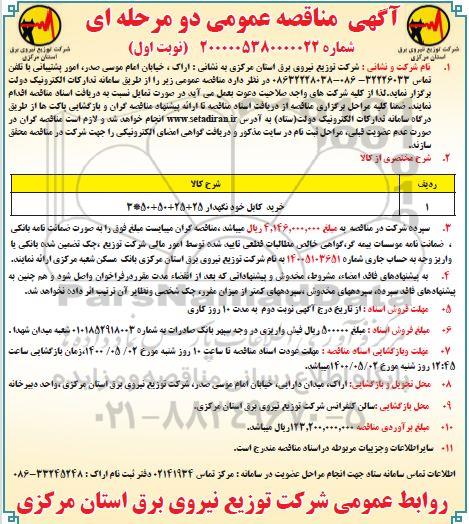 آگهی مناقصه عمومی دو مرحله ای
شماره ۲۰۰۰۰۰۵۳۸۰۰۰۰۰۲۲ (نوبت اول)
شرکت توزیع نیروی برق
استان مرکزی
شرکت توزیع نیروی برق
استان مرکزی
۱. نام شرکت و نشانی : شرکت توزیع نیروی برق استان مرکزی به نشانی : اراک ، خیابان امام موسی صدر، امور پشتیبانی با تلفن
تماس ۳۲۲۲۶۰۳۳-۰۸۶ – ۰۸۶۳۲۲۲۸۰۳۸ در نظر دارد مناقصه عمومی زیر را از طریق سامانه تدارکات الکترونیک دولت
برگزار نماید.لذا از کلیه شرکت های واجد صلاحیت دعوت بعمل می آید در صورت تمایل نسبت به دریافت اسناد مناقصه اقدام
نمایند. ضمنا کلیه مراحل برگزاری مناقصه از دریافت اسناد مناقصه تا ارائه پیشنهاد مناقصه گران و بازگشایی پاکت ها از طریق
درگاه سامانه تدارکات الکترونیک دولت(ستاد) به آدرس www.setadiran.ir انجام خواهد شد و لازم است مناقصه گران در
صورت عدم عضویت قبلی، مراحل ثبت نام در سایت مذکور و دریافت گواهی امضای الکترونیکی را جهت شرکت در مناقصه محقق
سازند.
۲. شرح مختصری از کالا
ردیف شرح کالا
۱ خرید کابل خود نگهدار ۲۵+۲۵+۵۰+۵۰*۳
۳. سپرده شرکت در مناقصه به مبلغ ۴,۱۴۶,۰۰۰,۰۰۰ ریال میباشد ،مناقصه گران میبایست مبلغ فوق را به صورت ضمانت نامه بانکی
، ضمانت نامه موسسات بیمه گر،گواهی خالص مطالبات قطعی تایید شده توسط امور مالی شرکت توزیع ،چک تضمین شده بانکی یا
واریز وجه به حساب جاری شماره ۱۴۰۰۵۱۰۳۶۵۱ به نام شرکت توزیع نیروی برق استان مرکزی بانک مسکن شعبه مرکزی ارائه نمایند.
۴. به پیشنهادهای فاقد امضاء، مشروط، مخدوش و پیشنهاداتی که بعد از انقضاء مدت مقرردرفراخوان واصل شود و هم چنین به
پیشنهادهای فاقد سپرده، سپردهای مخدوش ،سپردهای کمتر از میزان مقرر، چک شخصی ونظایر آن ترتیب اثر داده نخواهد شد.
۵- مهلت فروش اسناد : از تاریخ درج آگهی نوبت دوم به مدت ۱۰ روز کاری
۶- مبلغ فروش اسناد : ۵۰۰۰۰۰ ریال فیش واریزی در وجه سپهر بانک صادرات به شماره ۰۱۰۱۸۵۲۹۱۸۰۰۳ شعبه میدان شهدا .
۷- مهلت وبازگشایی اسناد مناقصه : مهلت عودت اسناد مناقصه تا ساعت ۱۰ روز شنبه مورخ ۱۴۰۰/۰۵/۰۲ ،زمان بازگشایی ساعت
۱۲:۴۵ روز شنبه مورخ ۱۴۰۰/۰۵/۰۲میباشد.
۸- محل تحویل و بازگشایی: اراک، میدان دارایی، خیابان امام موسی صدر، شرکت توزیع نیروی برق استان مرکزی، واحد دبیرخانه
۹- محل بازگشایی :سالن کنفرانس شرکت توزیع نیروی برق استان مرکزی.
۱۰- مبلغ برآوردی مناقصه ۱۲۳,۲۰۰,۰۰۰,۰۰۰ریال میباشد.
۱۱- سایراطلاعات وجزییات مربوطه دراسناد مناقصه مندرج است.
اطلاعات تماس سامانه ستاد جهت انجام مراحل عضویت در سامانه : مرکز تماس ۰۲۱۴۱۹۳۴ دفتر ثبت نام اراک : ۳۳۲۴۵۲۴۸-۰۸۶
روابط عمومی شرکت توزیع نیروی برق استان مرکزی
۰۲۱-۸۸۳۴۹۶۷۰-۵